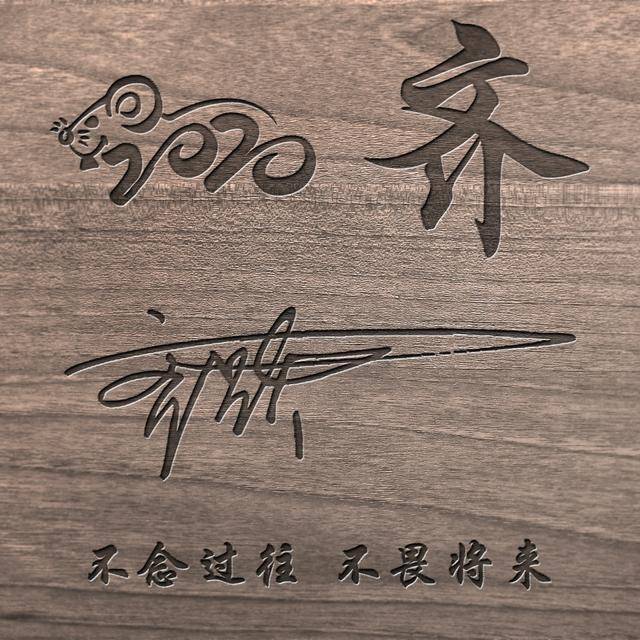 2020 齐
不念过往 不畏将来